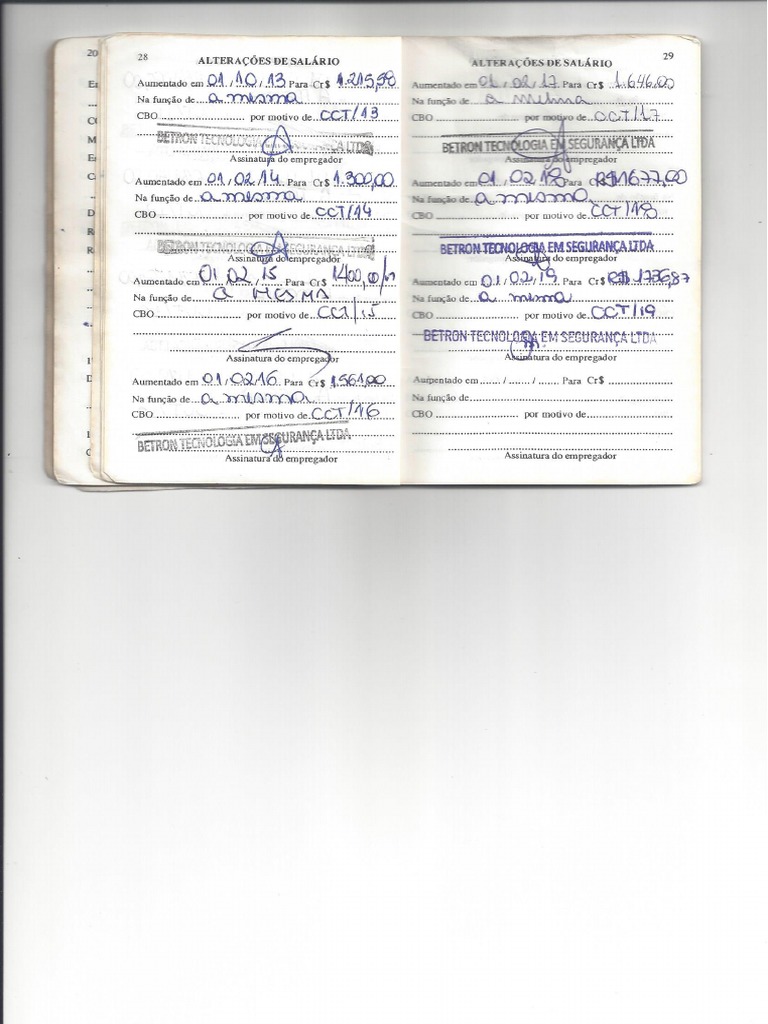 20
28
ALTERAÇÕES DE SALÁRIO
Aumentado em 01/10/13 Para Cr$ 1.215,98
Na função de a mesma
CBO por motivo de CCT/13
BETRON TECNOLOGIA EM SEGURANÇA LTDA
Assinatura do empregador
Aumentado em 01/02/14 Para Cr$ 1.300,00
Na função de a mesma
CBO por motivo de CCT/14
BETRON TECNOLOGIA EM SEGURANÇA LTDA
Assinatura do empregador
Aumentado em 01/02/15 Para Cr$ 1400,00
Na função de a MESMA
CBO por motivo de CCT/15
Assinatura do empregador
Aumentado em 01/02/16 Para Cr$ 1.561,00
Na função de a mesma
CBO por motivo de CCT/16
BETRON TECNOLOGIA EM SEGURANÇA LTDA
Assinatura do empregador
29
ALTERAÇÕES DE SALÁRIO
Aumentado em 01/02/17 Para Cr$ 1.646,00
Na função de a mesma
CBO por motivo de CCT/17
BETRON TECNOLOGIA EM SEGURANÇA LTDA
Assinatura do empregador
Aumentado em 01/02/18 Para R$1677,00
Na função de a mesma
CBO por motivo de CCT/18
BETRON TECNOLOGIA EM SEGURANÇA LTDA
Assinatura do empregador
Aumentado em 01/02/19 Para Cr$ R$ 1736,87
Na função de a mesma
CBO por motivo de CCT/19
BETRON TECNOLOGIA EM SEGURANÇA LTDA
Assinatura do empregador
Aumentado em / / Para Cr$
Na função de
CBO por motivo de
Assinatura do empregador